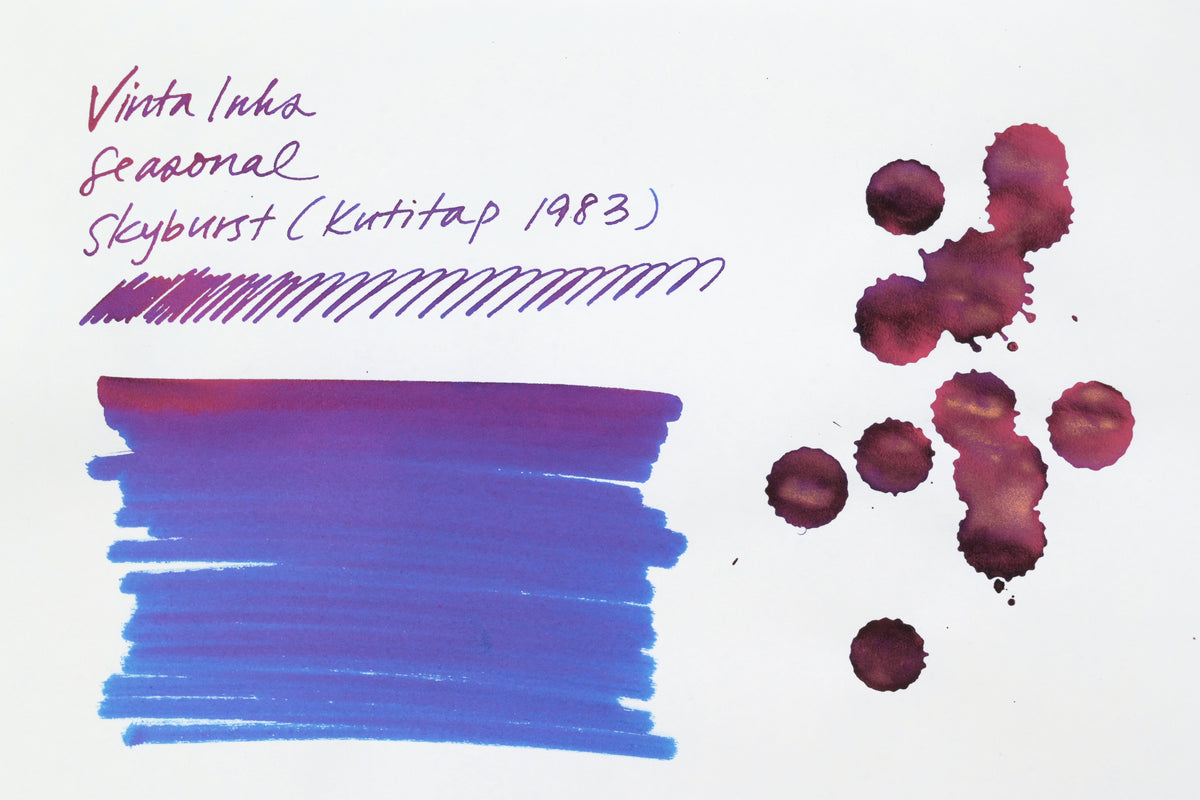 Vinta Inks
Seasonal
Skyburst (Kutitap 1983)